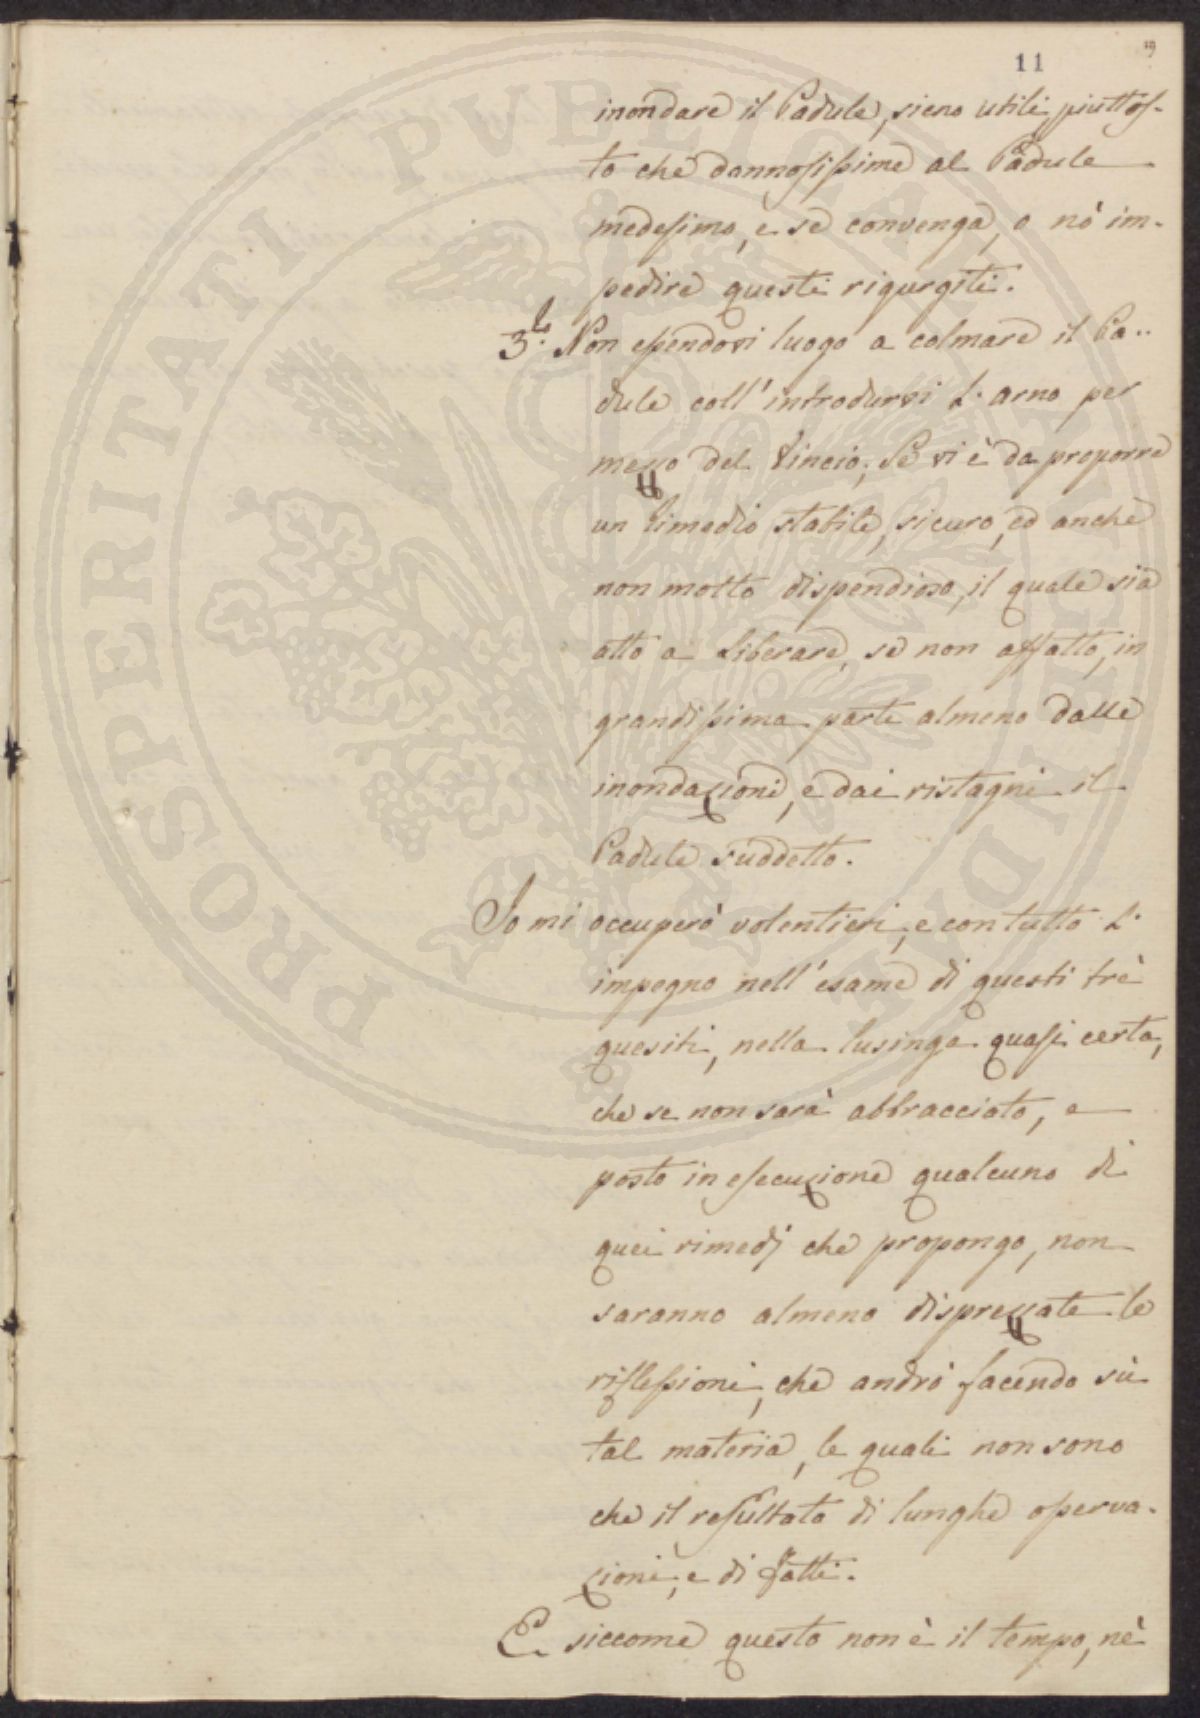 11
inondare il Padule, sieno utili, piuttos-
to che dannosissime al Padule
medesimo, e se convenga, o nò im-
pedire questi rigurgiti.
3.º Non essendovi luogo a colmare il Pa-
dule coll'introdurvi l'arno per
mezzo del Vincio; Se vi è da proporre
un Rimedio stabile, sicuro, ed anche
non molto dispendioso, il quale sia
atto a liberare, se non affatto, in
grandissima parte almeno dalle
inondazioni, e dai ristagni il
Padule suddetto.
Io mi occuperò volentieri, e con tutto l'
impegno nell'esame di questi trè
quesiti, nella lusinga quasi certa,
che se non sarà abbracciato, e
posto in esecuzione qualcuno di
quei rimedj che propongo, non
saranno almeno disprezzate le
riflessioni, che andrò facendo sù
tal materia, le quali non sono
che il resultato di lunghe osserva-
zioni, e di fatti.
E siccome questo non è il tempo, nè
PROSPERITATI PVBLICAE AVGENDAE